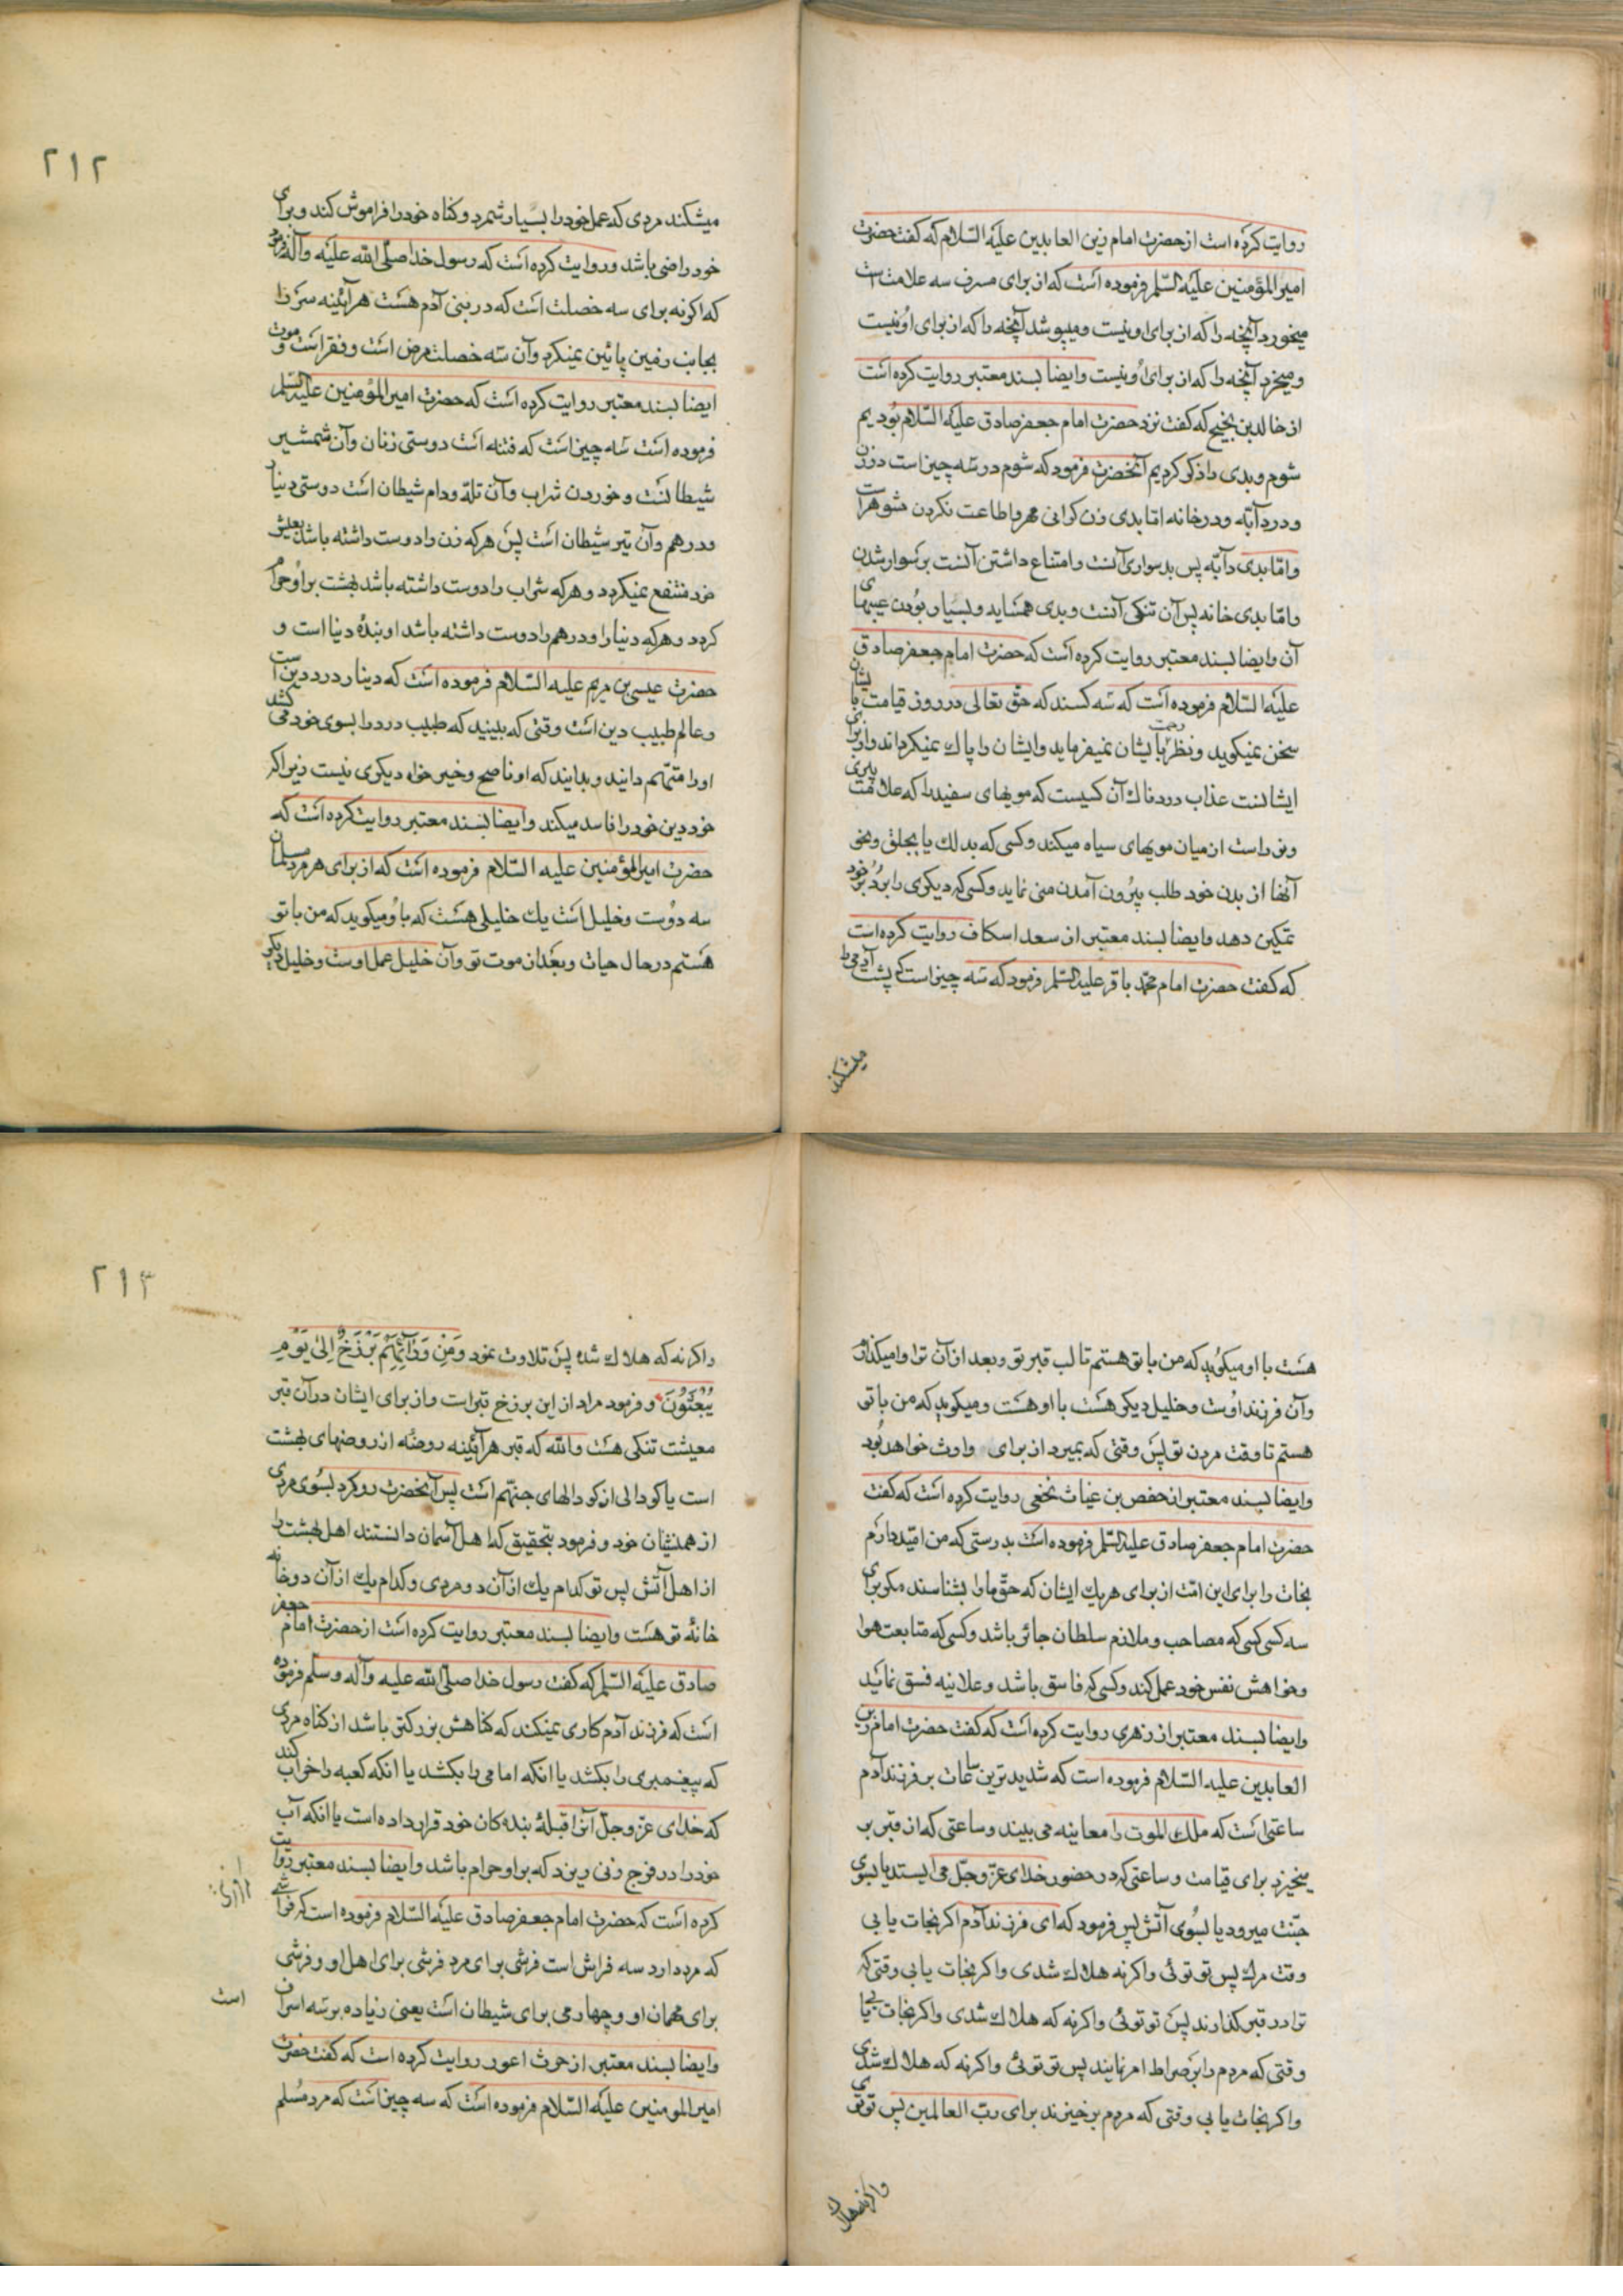 روایت کرده است از حضرت امام زین العابدین علیه السّلام که گفت حضرت
امیر المؤمنین علیه السّلم فرموده است که از برای مسرف سه علامت است
میخورد آنچه را که از برای او نیست و میپوشد آنچه را که از برای او نیست
و میخرد آنچه را که از برای او نیست و ایضا بسند معتبر روایت کرده است
از خالد بن نجیح که گفت نزد حضرت امام جعفر صادق علیه السّلام بودیم
شوم و بدی را ذکر کردیم آنحضرت فرمود که شوم در سه چیز است در زن
و در دآبّه و در خانه امّا بدی زن کرانی مهر و اطاعت نکردن شوهر است
و امّا بدی دآبّه پس بد سواری آنست و امتناع داشتن آنست بر سوار شدن
و امّا بدی خانه پس آن تنکی آنست و بدی همسایه و بسیار بودن عیبهای
آن و ایضا بسند معتبر روایت کرده است که حضرت امام جعفر صادق
علیه السّلام فرموده است که سه کسند که حقّ تعالی در روز قیامت با یشان
سخن نمیکوید و نظر رحمت بایشان نمیفرماید و ایشان را پاك نمیکرداند و از برای
ایشانست عذاب دردناك آن کسیست که مویهای سفید را که علامت پیری
و نور است از میان مویهای سیاه میکند و کسی که بدلك یا بجلق و نحو
آنها از بدن خود طلب بیرون آمدن منی نماید و کسی که دیکری را بر دُبر خود
تمکین دهد و ایضا بسند معتبر از سعد اسکاف روایت کرده است
که گفت حضرت امام محمّد باقر علیه السّلم فرمود که سه چیز است که پشت آدمی را
میشکند
۲۱۲
میشکند مردی که عمل خود را بسیار شمرد و کناه خود را فراموش کند و برای
خود راضی باشد و روایت کرده است که رسول خدا صلّی الله علیه وآله فرمود
که اکر نه برای سه خصلت است که در بنی آدم هست هرآینه سر را
بجانب زمین پائین نمیکرد وآن سه خصلت مرض است و فقر است و موت
ایضا بسند معتبر روایت کرده است که حضرت امیر المؤمنین علیه السّلم
فرموده است سه چیز است که فتنه است دوستی زنان وآن شمشیر
شیطانست و خوردن شراب وآن تله و دام شیطان است دوستی دینار
و درهم وآن تیر شیطان است پس هر که زن را دوست داشته باشد بعیش
خود منتفع نمیکردد و هر که شراب را دوست داشته باشد بهشت بر او حرام
کردد و هرکه دینار و درهم را دوست داشته باشد او بندهٔ دنیا است و
حضرت عیسی بن مریم علیه السّلام فرموده است که دینار درد دین است
و عالم طبیب دین است وقتی که ببینید که طبیب درد را بسوی خود می کشد
او را متّهم دانید و بدانید که او ناصح و خیر خواه دیکری نیست زیرا که
خود دین خود را فاسد میکند و ایضا بسند معتبر روایت کرده است که
حضرت امیر المؤمنین علیه السّلام فرموده است که از برای هر مرد مسلمان
سه دوست و خلیل است یك خلیلی هست که با او میکوید که من با تو
هستم در حال حیات و بعد از موت تو وآن خلیل عمل اوست و خلیل دیکر
هست با او میکوید که من با تو هستم تا لب قبر تو و بعد از آن ترا وامیکذارم
وآن فرزند اوست و خلیل دیکر هست با او هست و میکوید که من با تو
هستم تا وقت مردن تو پس وقتی که بمیرد از برای وارث خواهد بود
و ایضا بسند معتبر از حفص بن غیاث نخعی روایت کرده است که گفت
حضرت امام جعفر صادق علیه السّلم فرموده است بدرستی که من امّید دارم
نجات را برای این امّت از برای هر یك ایشان که حقّ ما را بشناسند مکر برای
سه کس کسی که مصاحب و ملازم سلطان جائر باشد و کسی که متابعت هوا
و خواهش نفس خود عمل کند و کسی که فاسق باشد و علانیه فسق نماید
و ایضا بسند معتبر از زهری روایت کرده است که گفت حضرت امام زین
العابدین علیه السّلام فرموده است که شدیدترین ساعات بر فرزند آدم
ساعتی است که ملك الموت را معاینه می بیند و ساعتی که از قبر بر
میخیزد برای قیامت و ساعتی که در حضور خدای عزّ وجلّ می ایستد یا بسوی
جنّت میرود یا بسوی آتش پس فرمود که ای فرزند آدم اکر نجات یابی
وقت مرك پس تو توئی واکرنه هلاك شدی واکر نجات یابی وقتی که
ترا در قبر کذارند پس تو توئی واکرنه که هلاك شدی واکر نجات یابی
وقتی که مردم را بر صراط امر نمایند پس تو توئی واکرنه که هلاك شدی
واکر نجات یابی وقتی که مردم برخیزند برای ربّ العالمین پس تو توئی
واکرنه هلاك
۲۱۳
واکرنه که هلاك شده پس تلاوت نمود وَمِنْ وَرَآئِهِمْ بَرْزَخٌ اِلیٰ یَوْمِ
یُبْعَثُونَ و فرمود مراد از این برزخ قبر است و از برای ایشان در آن قبر
معیشت تنکی هست والله که قبر هرآینه روضه از روضهای بهشت
است یا کودالی از کودالهای جهنّم است پس آنحضرت رو کرد بسوی مردی
از همنشینان خود و فرمود بتحقیق که اهل آسمان دانستند اهل بهشت را
از اهل آتش پس تو کدام یك از آن دو مردی و کدام یك از آن دو خانه
خانهٔ تو هست و ایضا بسند معتبر روایت کرده است از حضرت امام جعفر
صادق علیه السّلم که گفت رسول خدا صلّی الله علیه وآله وسلّم فرموده
است که فرزند آدم کاری نمیکند که کناهش بزرکتر باشد از کناه مردی
که پیغمبری را بکشد یا انکه امامی را بکشد یا انکه کعبه را خراب کند
که خدای عزّ وجلّ آنرا قبلهٔ بنده کان خود قرار داده است یا انکه آب
خود را در فرج زنی ریزد که بر او حرام باشد و ایضا بسند معتبر روایت
کرده است که حضرت امام جعفر صادق علیه السّلام فرموده است که فراشی
که مرد دارد سه فراش است فرشی برای مرد فرشی برای اهل او و فرشی
برای مهمان او و چهارمی برای شیطان است یعنی زیاده بر سه اسراف
است
و ایضا بسند معتبر از حرث اعور روایت کرده است که گفت حضرت
امیر المومنین علیه السّلام فرموده است که سه چیز است که مرد مسلم